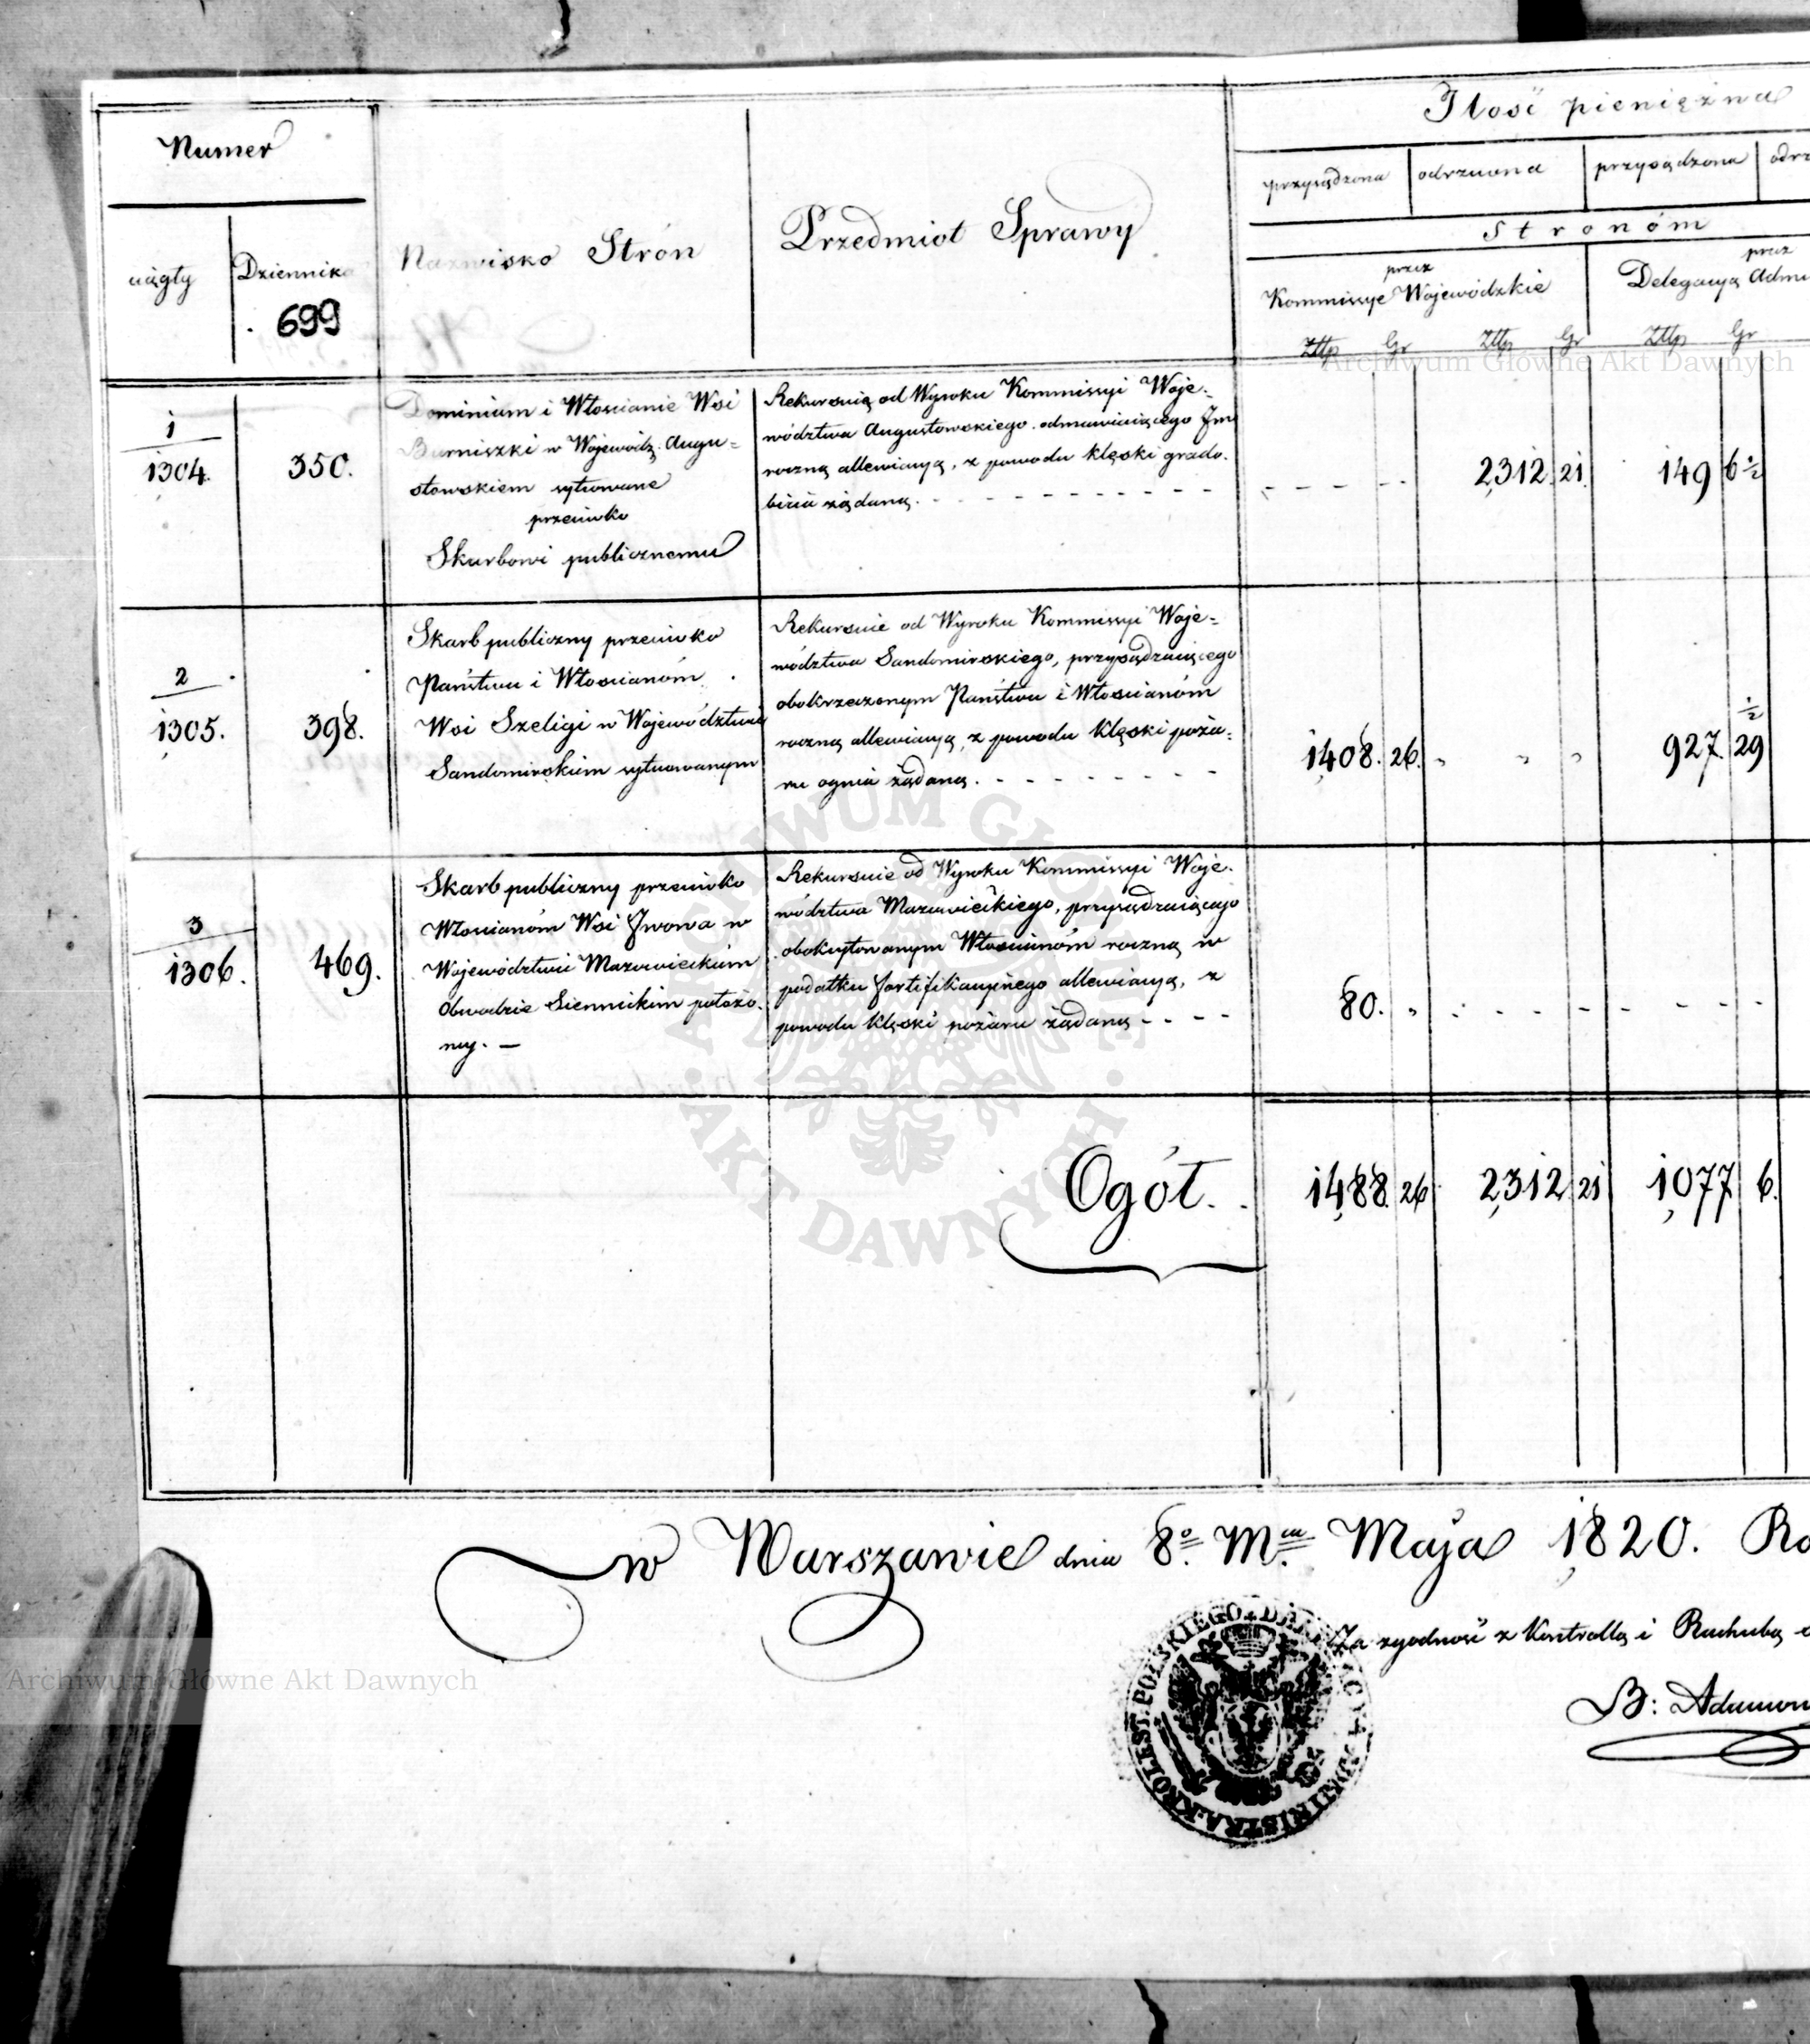 Numer
ciągły
Dziennika
699
Nazwisko Strón
Przedmiot Sprawy
Ilość pieniężna
przysądzona odrzucona przysądzona odrz
Stronóm
przez
Kommissye Wojewódzkie
przez
Delegacyą Admi
Złłp Gr Złłp Gr Złłp Gr
1
1304.
350.
Dominium i Włościanie Wsi
Burniszki w Wojewódz: Augu=
stowskiem sytuowane
przeciwko
Skarbowi publicznemu
Rekursuią od Wyroku Kommissyi Woje-
wództwa Augustowskiego odmawiaiącego Im
roczną allewiacyą, z powodu klęski grado-
bicia żądaną.
2312. 21. 149 6½
2
1305.
398.
Skarb publiczny przeciwko
Państwu i Włościanóm
Wsi Szeligi w Województwie
Sandomirskim sytuowanym
Rekursuie od Wyroku Kommissyi Woje=
wództwa Sandomirskiego, przysądzaiącego
obokrzeczonym Państwu i Włościanóm
roczną allewiacyą, z powodu klęski poża=
ru ognia żądaną.
1408. 26. 927. 29 ½
3
1306.
469.
Skarb publiczny przeciwko
Włościanóm Wsi Iwowa w
Województwie Mazowieckiem
Obwodzie Siennickim położo-
ney. —
Rekursuie od Wyroku Kommissyi Woje-
wództwa Mazowieckiego, przysądzaiącego
obokcytowanym Włościanóm roczną w
podatku fortifikacyinego allewiacyą, z
powodu klęski pożaru żądaną
80. "
Ogół.
1488. 26 2312. 21 1077 6.
w Warszawie dnia 8º Mca Maja 1820. Ro
Za zgodność z Kontrollą i Rachubą
B: Adamow
KRÓLEST. POLSKIEGO
Archiwum Główne Akt Dawnych
Archiwum Główne Akt Dawnych
ARCHIWUM GŁÓWNE
AKT DAWNYCH